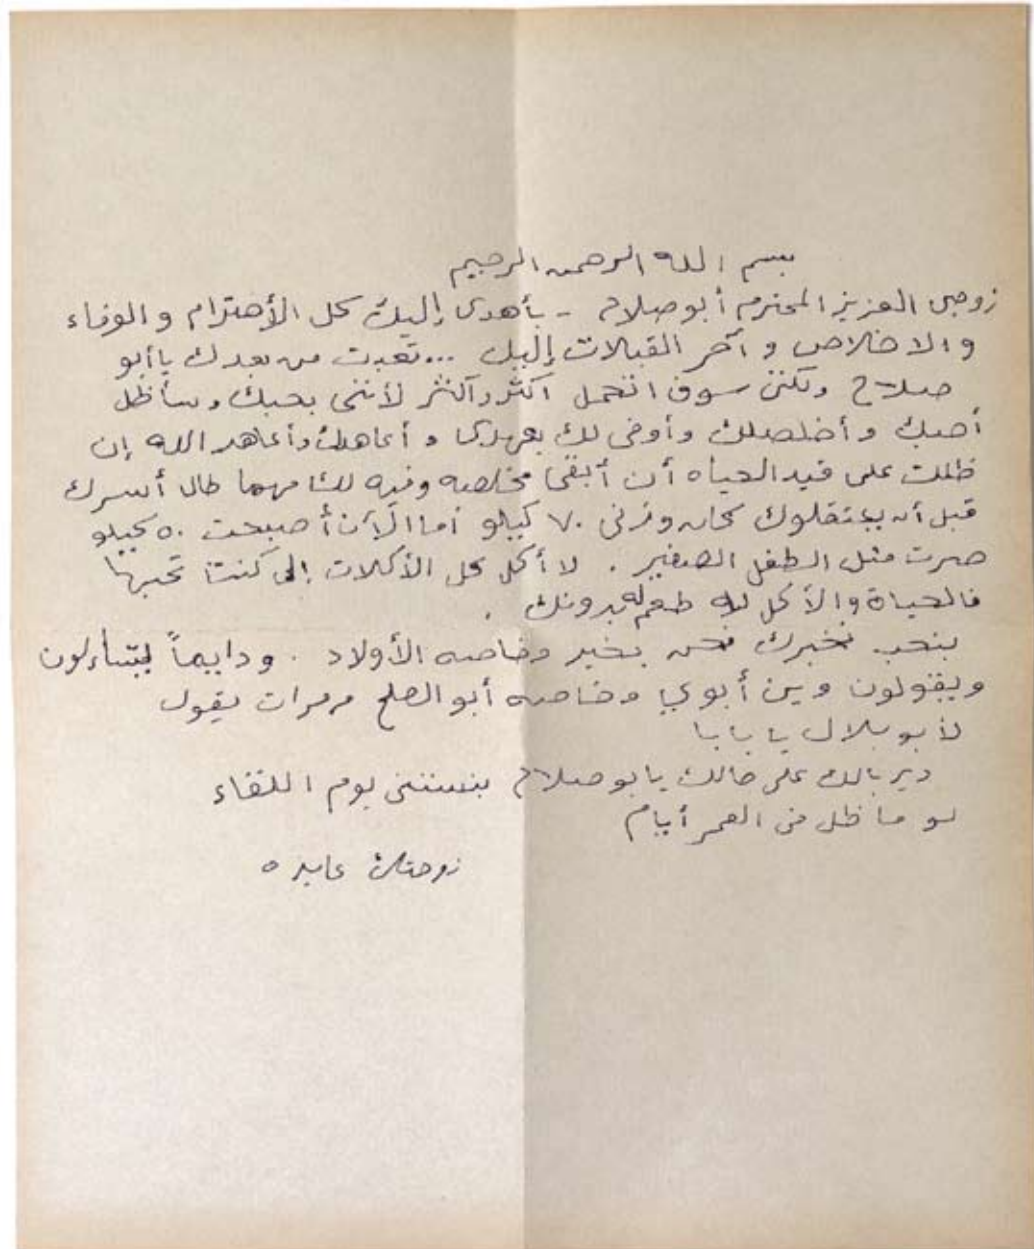 بسم الله الرحمن الرحيم
زوجي العزيز المحترم أبو صلاح - بأهدى إليك كل الأحترام والوفاء
والاخلاص وآحر القبلات إليك ... تعبت من بعدك ياأبو
صلاح ولكن سوف اتحمل أكثر وأكثر لأنني بحبك وسأظل
أحبك وأخلصلك وأوفى لك بعهدى وأعاهدك وأعاهد الله إن
ظللت على قيد الحياه أن أبقى مخلصه وفيه لك مهما طال أسرك
قبل أن يعتقلوك كان وزنى ٧٠ كيلو أما الآن أصبحت ٥٠ كيلو
صرت مثل الطفل الصغير . لا أكل كل الأكلات إلى كنت تحبها
فالحياة والأكل طعم بدونك .
بنحب نخبرك نحن بخير وخاصه الأولاد . ودايماً بتساءلون
ويقولون وين أبوي وخاصه أبو الصلح مرمرات يقول
لأبو بلال يا بابا
دير بالك على حالك يابو صلاح بنستنى يوم اللقاء
لو ما ظل فى العمر أيام
زوجتك عايده